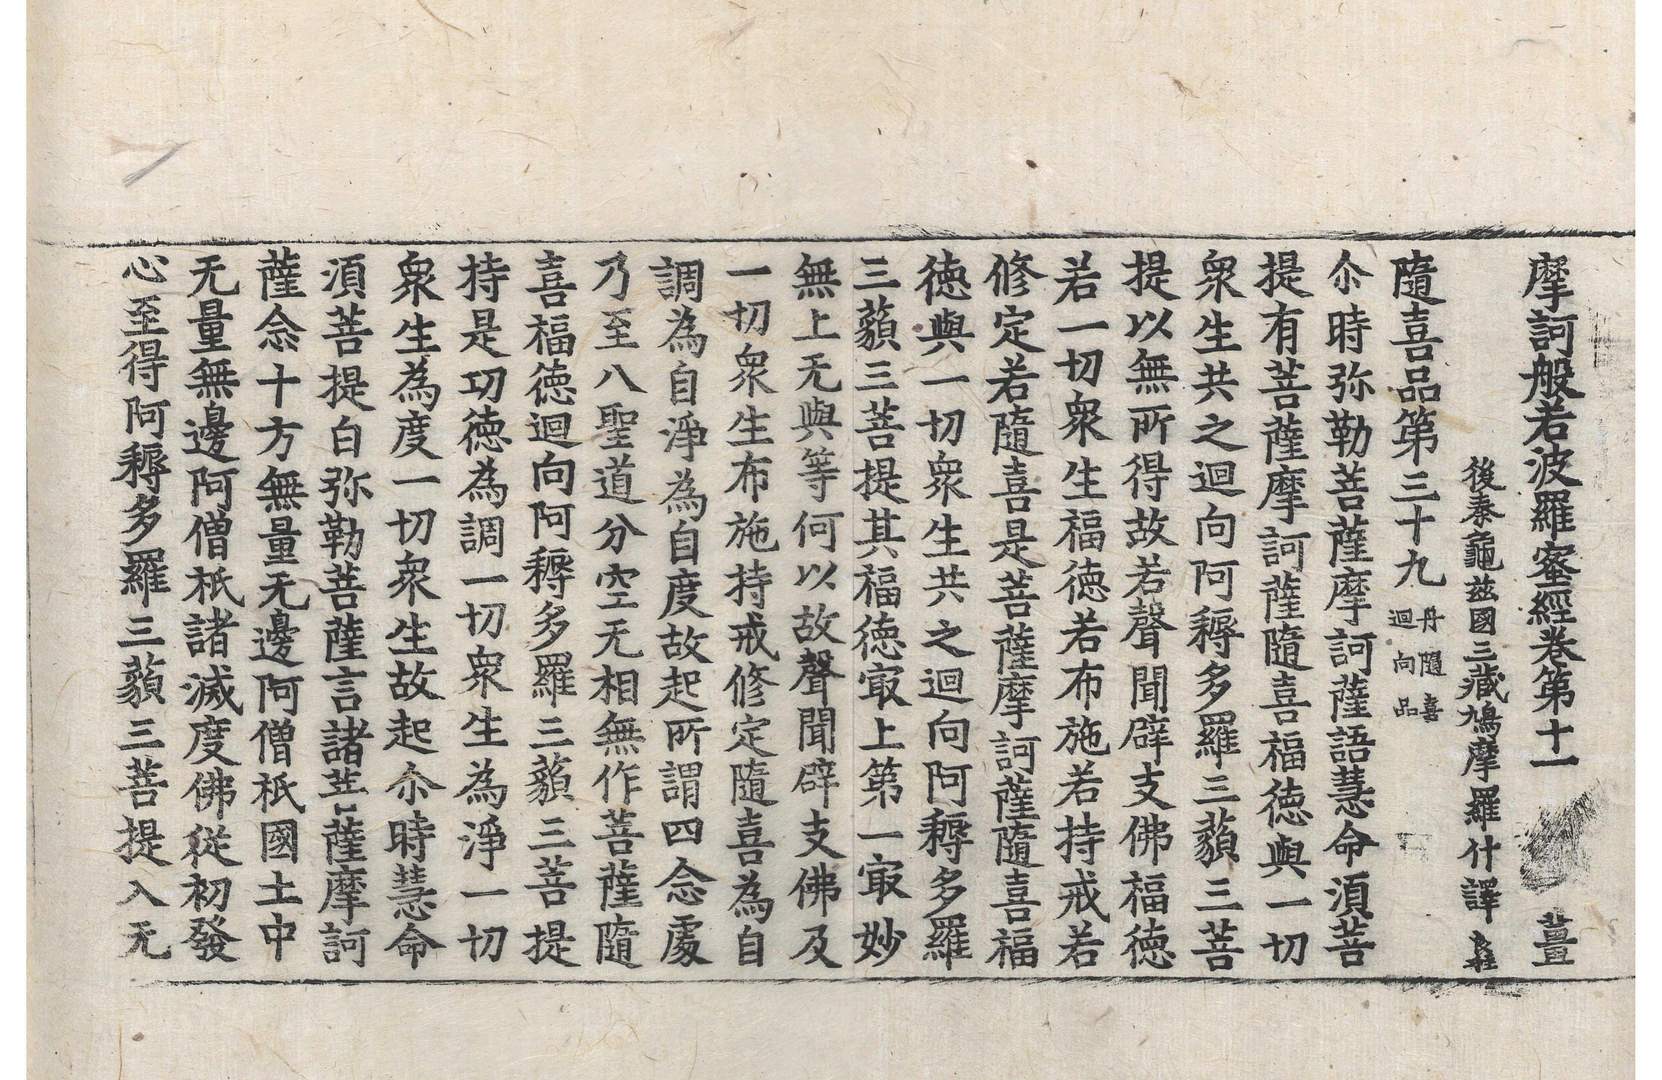 摩訶般若波羅蜜經卷第十一 薑
後秦龜茲國三藏鳩摩羅什譯
隨喜品第三十九 丹隨喜迴向品
尒時弥勒菩薩摩訶薩語慧命湏菩
提有菩薩摩訶薩隨喜福徳與一切
衆生共之迴向阿耨多羅三藐三菩
提以無所得故若聲聞辟支佛福徳
若一切衆生福徳若布施若持戒若
修定若隨喜是菩薩摩訶薩隨喜福
徳與一切衆生共之迴向阿耨多羅
三藐三菩提其福徳㝡上第一㝡妙
無上无與等何以故聲聞辟支佛及
一切衆生布施持戒修定隨喜為自
調為自淨為自度故起所謂四念處
乃至八聖道分空无相無作菩薩隨
喜福徳迴向阿耨多羅三藐三菩提
持是功徳為調一切衆生為淨一切
衆生為度一切衆生故起尒時慧命
湏菩提白弥勒菩薩言諸菩薩摩訶
薩念十方無量无邊阿僧祇國土中
无量無邊阿僧祇諸滅度佛從初發
心至得阿耨多羅三藐三菩提入无